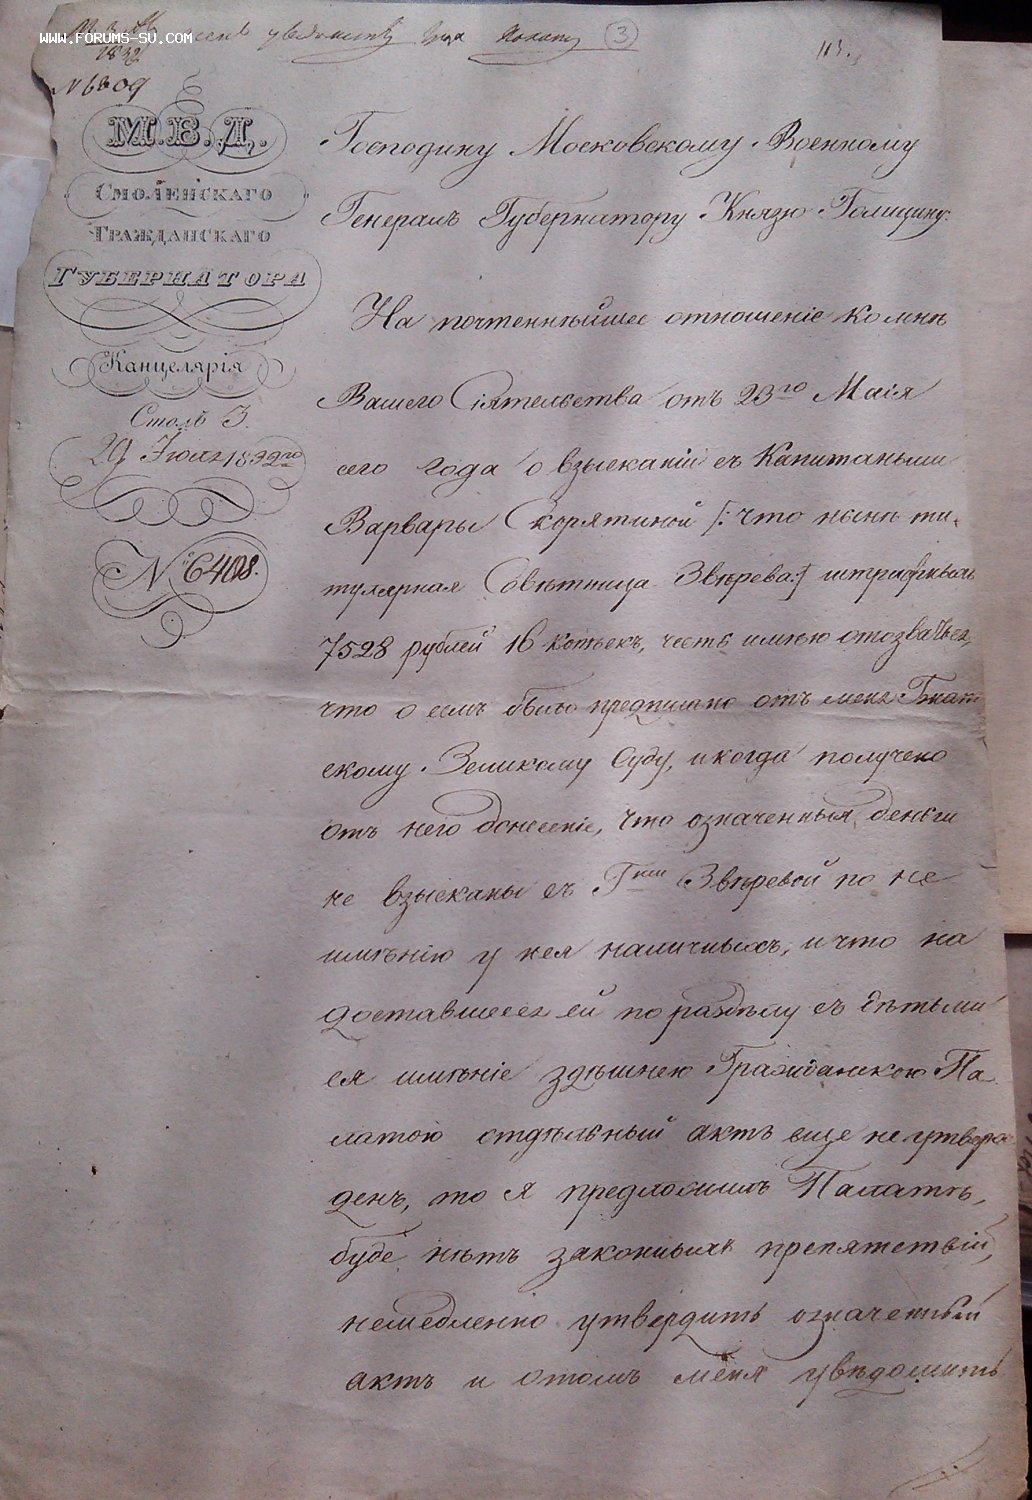 www.forums-su.com
3
113.
1832
№ 6209
М.В.Д.
Смоленскаго
Гражданскаго
Губернатора
Канцелярія
Столъ 3.
29 Іюля 1832го
№ 6408.
Господину Московскому Военному
Генералъ Губернатору Князю Голицыну.
На почтеннѣйшее отношеніе ко мнѣ
Вашего Сіятельства отъ 23го Маія
сего года о взысканіи съ Капитанши
Варвары Скорятиной /: что нынѣ ти-
тулярная Совѣтница Звѣрева :/ штрафныхъ
7528 рублей 16 копѣекъ, честь имѣю отозваться,
что о семъ было предписано отъ меня Гжат-
скому Земскому Суду, и когда получено
отъ него донесеніе, что означенныя деньги
не взысканы съ Гжи Звѣревой по не
имѣнію у нея наличныхъ, и что на
доставшееся ей по раздѣлу съ дѣтьми
ея имѣніе здѣшнею Гражданскою Па-
латою отдѣльный актъ еще не утверж-
денъ, то я предложилъ Палатѣ,
буде нѣтъ законныхъ препятствій,
немедленно утвердить означенный
актъ и о томъ меня увѣдомить